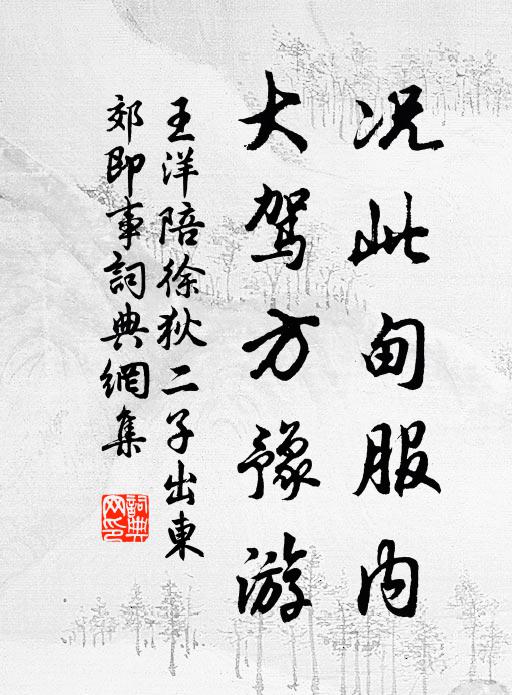 况此甸服内
大驾方豫游
王洋陪徐狄二子出東
郊即事詞典網集
詞典
网印